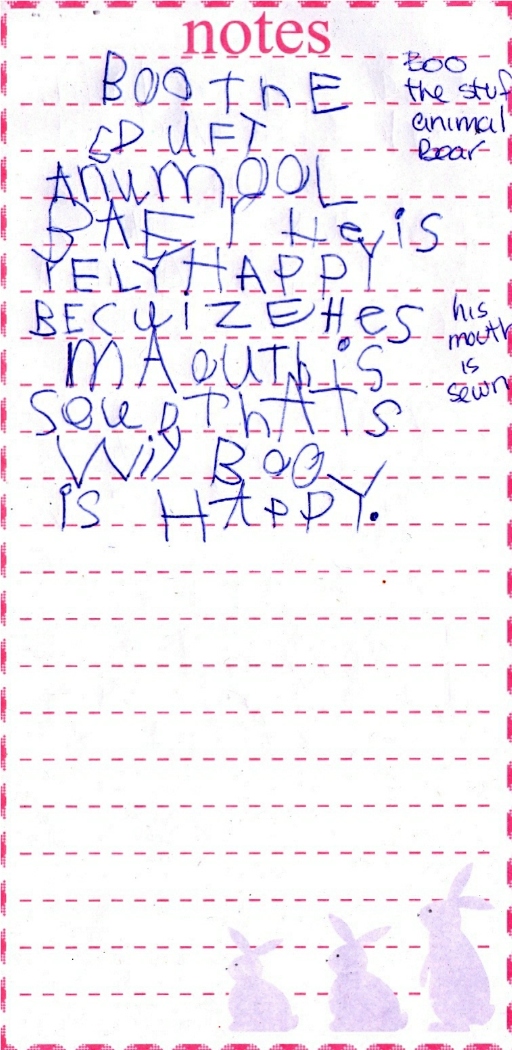 notes
BOO ThE
SDUFT
ANuMOOL
BAEr He is
YELY HAPPY
BECUIZE Hes
MAOUTh iS
SOUD ThATS
WiY BOO
iS HAPPY.
Boo
the stuf
animal
Bear
his
mouth
is
sewn